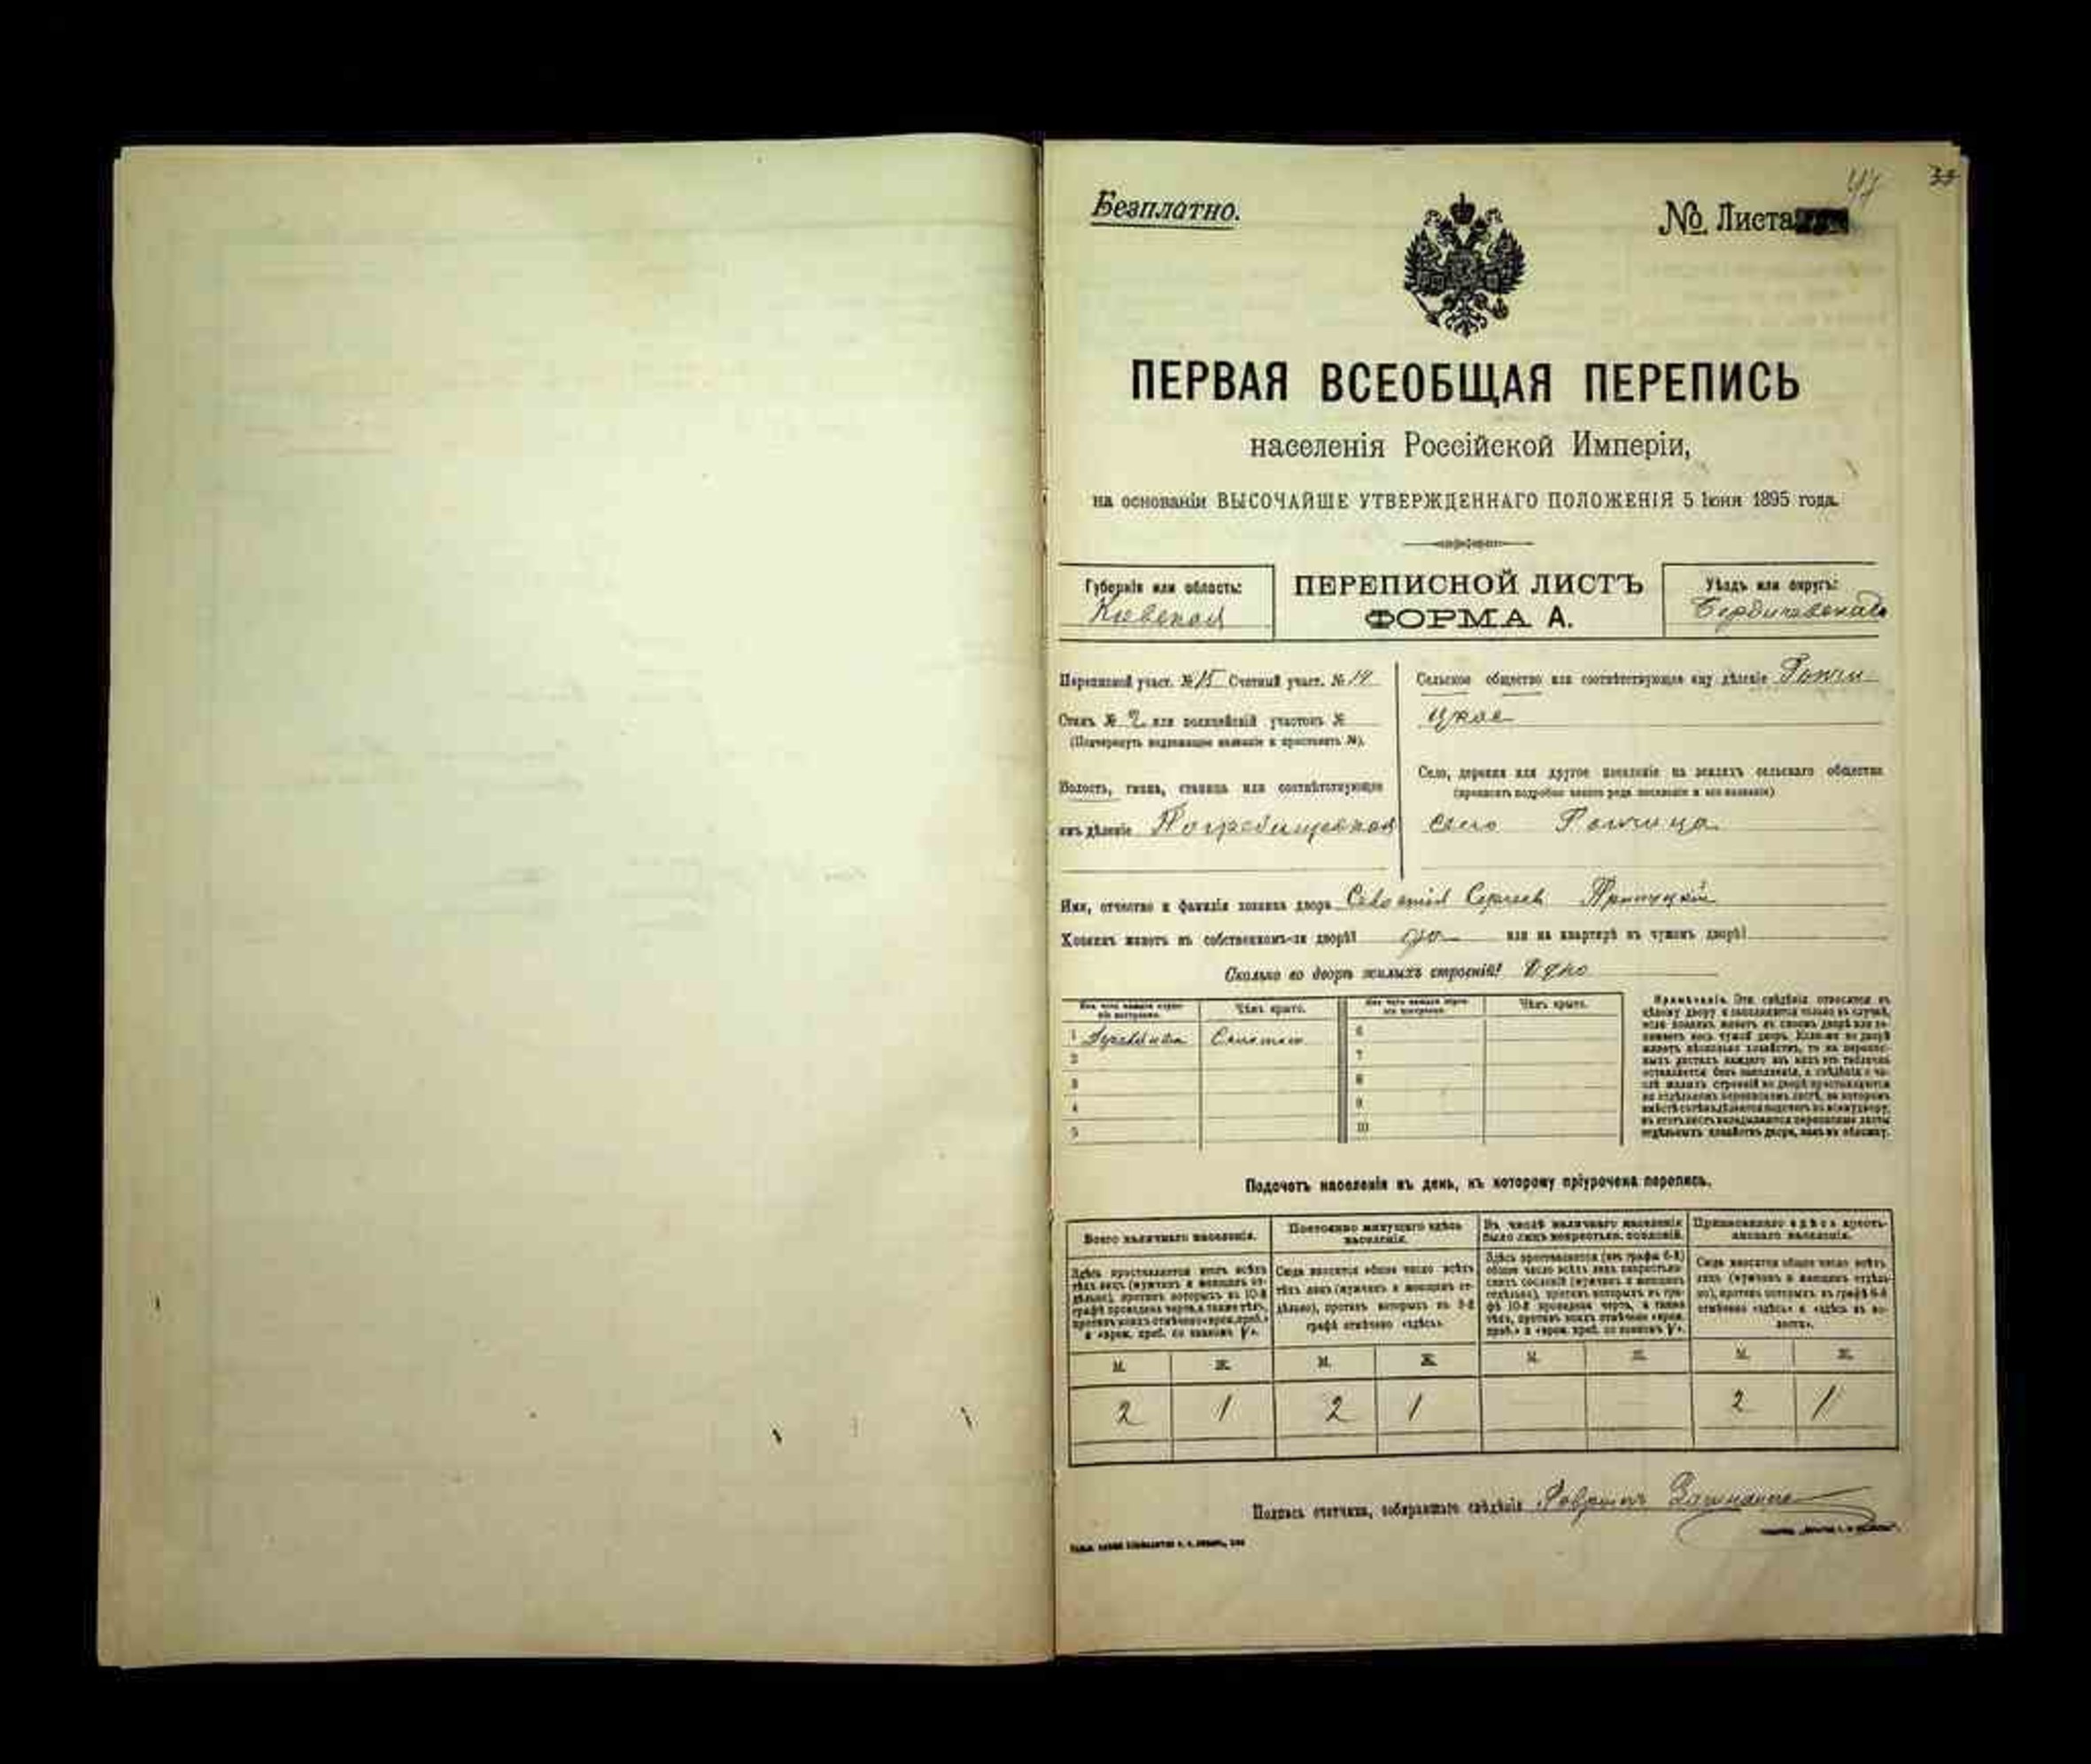 47 33
Безплатно.
№ Листа
ПЕРВАЯ ВСЕОБЩАЯ ПЕРЕПИСЬ
населенія Россійской Имперіи,
на основаніи ВЫСОЧАЙШЕ УТВЕРЖДЕННАГО ПОЛОЖЕНІЯ 5 Іюня 1895 года.
Губернія или область:
Кіевская
ПЕРЕПИСНОЙ ЛИСТЪ
ФОРМА А.
Уѣздъ или округъ:
Бердичевскій
Переписной участ. № 15 Счетный участ. № 14
Станъ № 2 или полицейскій участокъ №
(Подчеркнуть надлежащее названіе и проставить №).
Волость, гмина, станица или соотвѣтствующее
имъ дѣленіе Погребищенская
Сельское общество или соотвѣтствующее ему дѣленіе
цкое
Село, деревня или другое поселеніе на земляхъ сельскаго общества
(прописать подробно какого рода поселеніе и его названіе)
село
Имя, отчество и фамилія хозяина двора Сергеев
Хозяинъ живетъ въ собственномъ-ли дворѣ? да или на квартирѣ въ чужомъ дворѣ?
Сколько во дворѣ жилыхъ строеній? Одно
Изъ чего каждое строеніе построено. Чѣмъ крыто. Изъ чего каждое строеніе построено. Чѣмъ крыто.
1 Соломою 6
2 7
3 8
4 9
5 10
Примѣчаніе. Эти свѣдѣнія относятся къ
цѣлому двору и заполняются только въ случаѣ,
если хозяинъ живетъ въ своемъ дворѣ или за-
нимаетъ весь чужой дворъ. Если-же во дворѣ
живетъ нѣсколько хозяйствъ, то на перепис-
ныхъ листахъ каждаго изъ нихъ эта табличка
оставляется безъ заполненія, а свѣдѣнія о чи-
слѣ жилыхъ строеній во дворѣ проставляются
на отдѣльномъ переписномъ листѣ, на которомъ
Подсчетъ населенія въ день, къ которому пріурочена перепись.
Всего наличнаго населенія. Постоянно живущаго здѣсь населенія. Въ числѣ наличнаго населенія было лицъ некрестьян. сословій. Приписаннаго здѣсь крестьянскаго населенія.
Здѣсь проставляется итогъ всѣхъ
тѣхъ лицъ (мужчинъ и женщинъ от-
дѣльно), противъ которыхъ въ 10-й
графѣ проведена черта, а также тѣхъ,
противъ коихъ отмѣчено «врем. преб.»
и «врем. преб. со знакомъ V».
Сюда вносится общее число всѣхъ
тѣхъ лицъ (мужчинъ и женщинъ от-
дѣльно), противъ которыхъ въ 9-й
графѣ отмѣчено «здѣсь».
Здѣсь проставляется (изъ графы 6-й)
общее число всѣхъ лицъ некрестьян-
скихъ сословій (мужчинъ и женщинъ
отдѣльно), противъ которыхъ въ гра-
фѣ 10-й проведена черта, а также
тѣхъ, противъ коихъ отмѣчено «врем.
преб.» и «врем. преб. со знакомъ V».
Сюда вносится общее число всѣхъ
лицъ (мужчинъ и женщинъ отдѣль-
но), противъ которыхъ въ графѣ 8-й
отмѣчено «здѣсь» и «здѣсь въ во-
лости».
М. Ж. М. Ж. М. Ж. М. Ж.
2 1 2 1 2 1
Подпись счетчика, собиравшаго свѣдѣнія